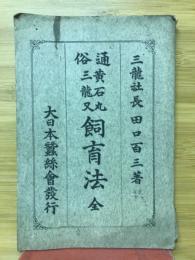 三龍社長 田口百三著
通俗 黄石丸 三龍又 飼育法 全
大日本蠶絲會發行